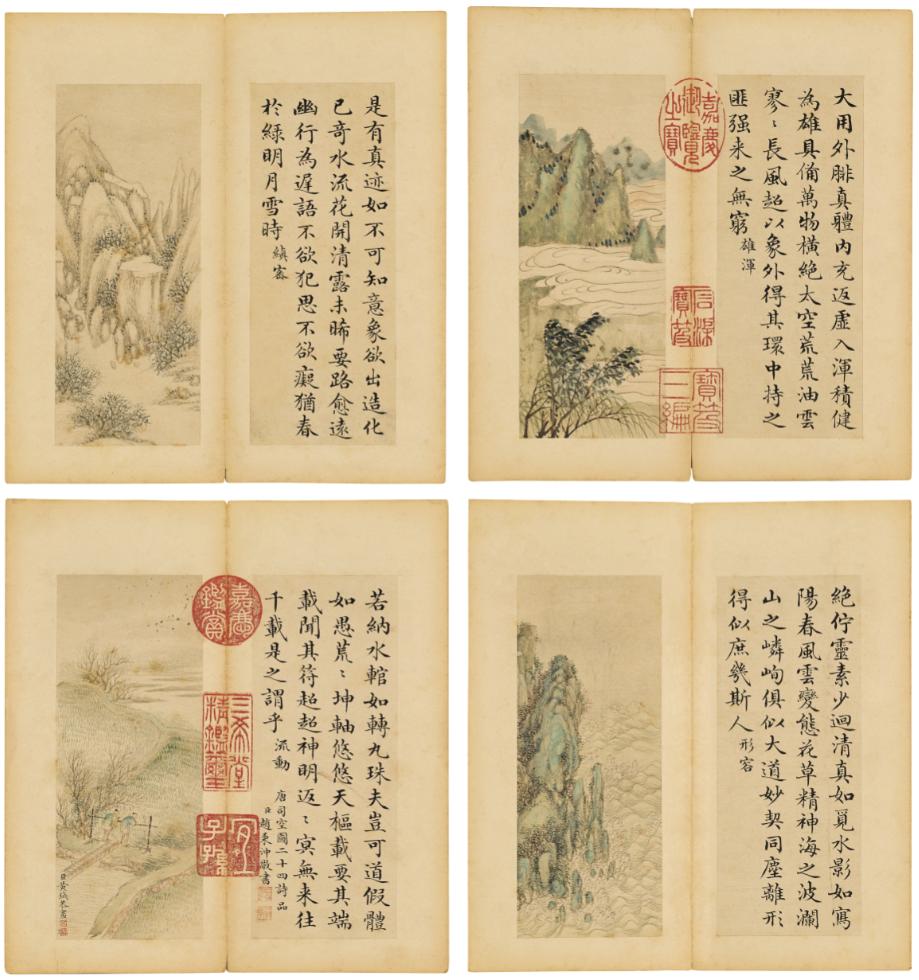 是有真迹如不可知意象欲出造化
已奇水流花開清露未晞要路愈遠
幽行為遲語不欲犯思不欲癡猶春
於綠明月雪時 縝密
大用外腓真體内充返虛入渾積健
為雄具備萬物橫絕太空荒荒油雲
寥〻長風超以象外得其環中持之
匪强来之無窮 雄渾
嘉慶御覽之寶
石渠寶笈
寶笈三編
若納水輨如轉丸珠夫豈可道假體
如愚荒〻坤軸悠悠天樞載要其端
載聞其符超超神明返〻冥無来往
千載是之謂乎 流動
唐司空圖二十四詩品
臣趙秉沖敬書
嘉慶鑑賞
三希堂精鑑璽
宜子孫
臣黃鉞恭畫
絶佇靈素少迴清真如覓水影如寫
陽春風雲變態花草精神海之波瀾
山之嶙峋俱似大道妙契同塵離形
得似庶幾斯人 形容